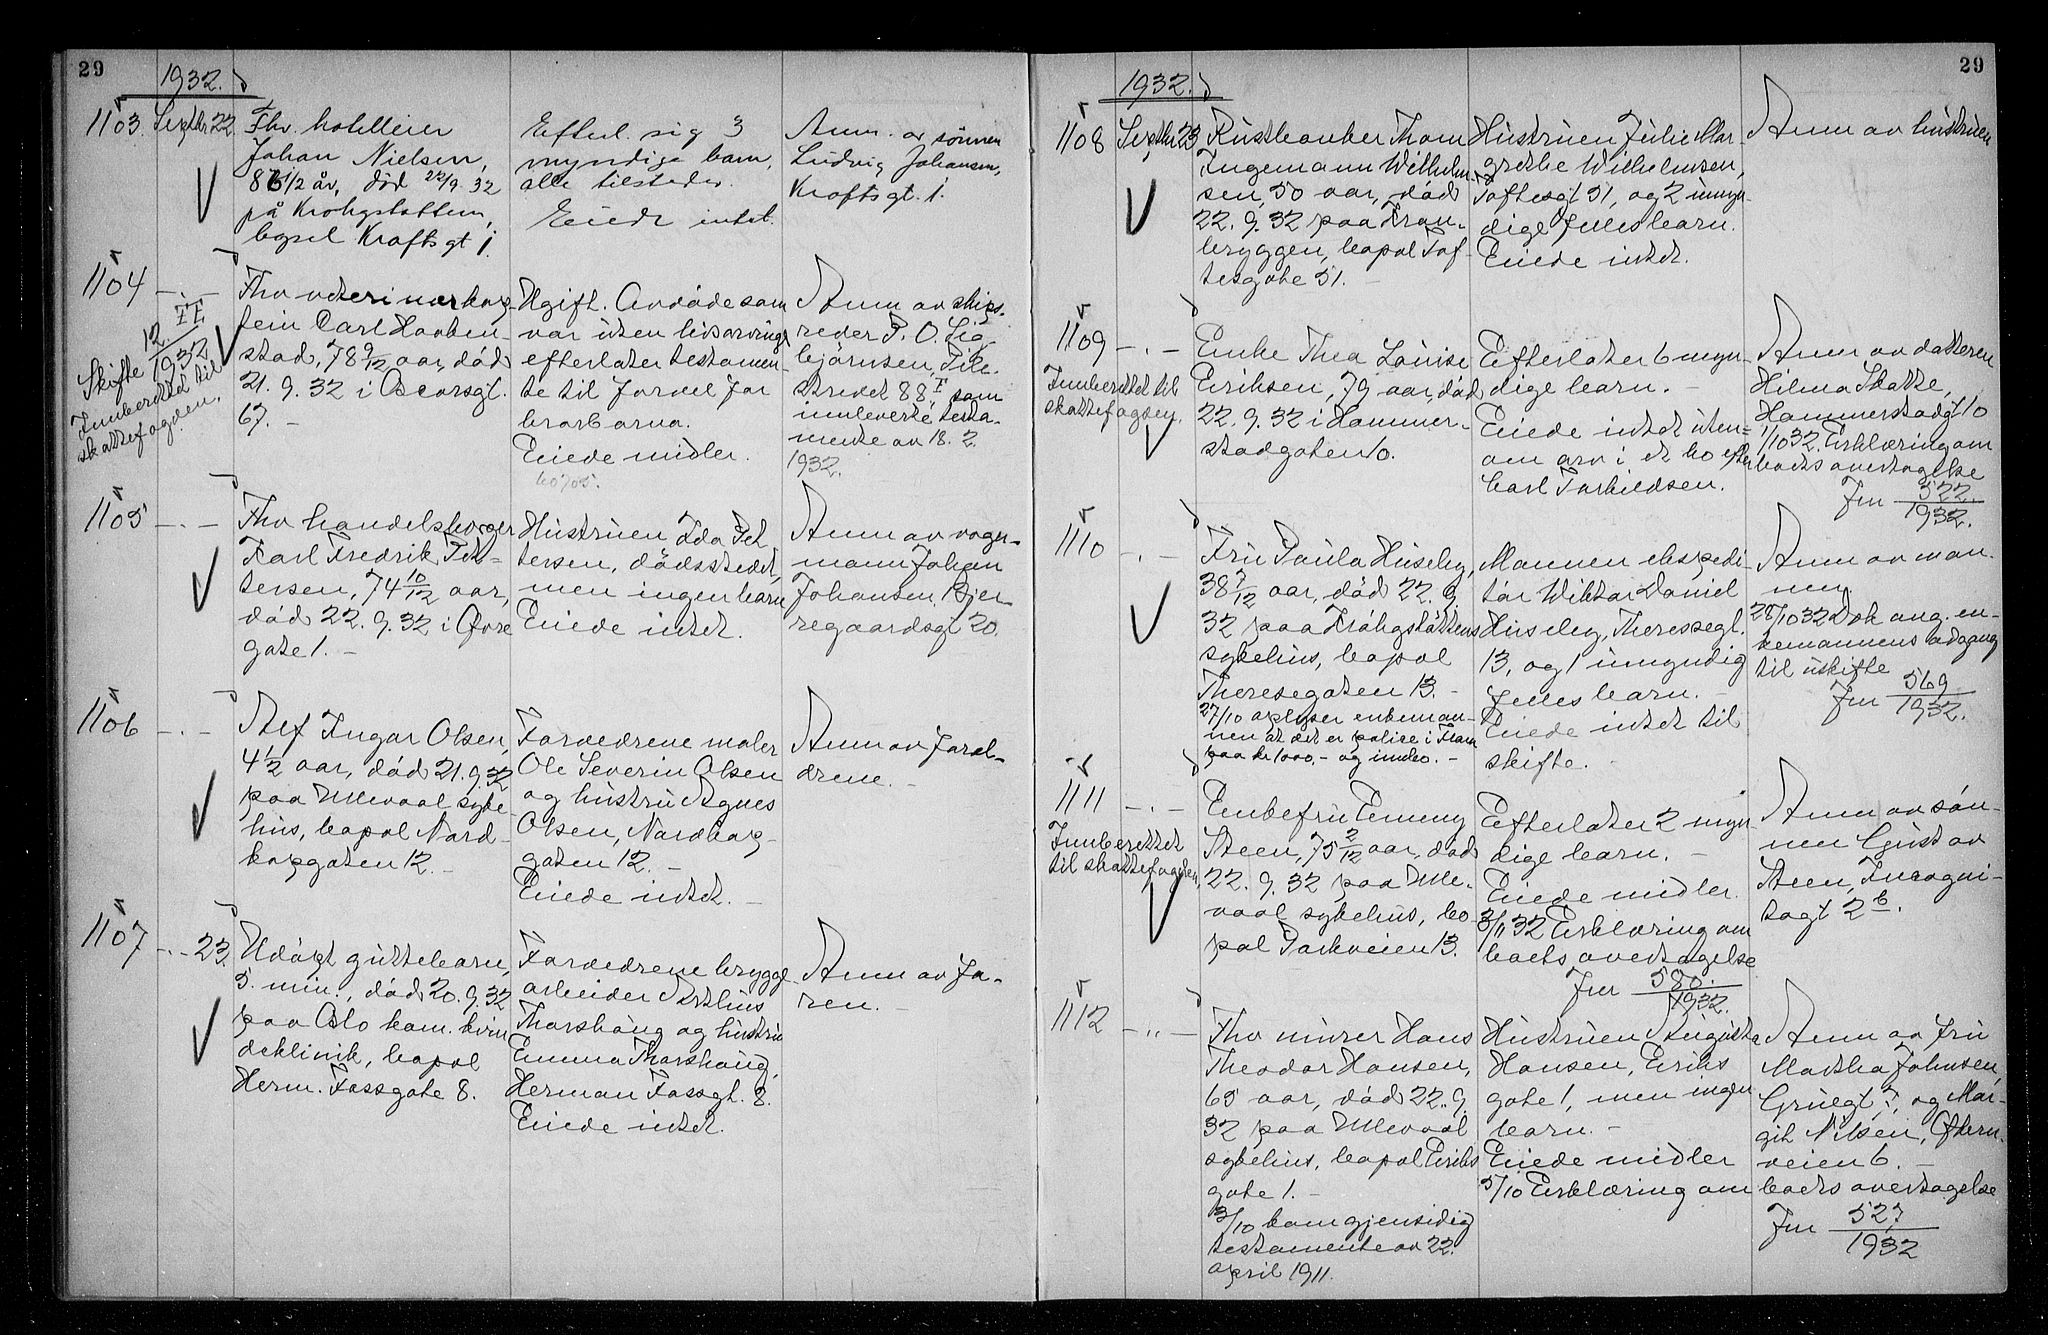 29
1932.
1103. Septbr 22.
Fhv. hotelleier
Johan Nielsen,
86 1/2 år, død 22/9. 32
på Krohgstøtten,
bopel Kroftsgt 1.
Efterl. sig 3
myndige barn,
alle tilstede.
Eiede intet.
Anm. av sønnen
Ludvig Johansen,
Kroftsgt. 1.
1104 -.-
Skifte 12 FF/1932
Innberettet til
skattefogden.
Fhv veterinærkap-
tein Carl Hovben-
stad, 78 9/12 aar, død
21. 9. 32 i Oscarsgt.
67. -
Ugift. Avdøde som
var uten livsarvinge
efterlater testamen-
te til fordel for
brorbarna.
Eiede midler.
Anm av skips-
reder P. O. Sig-
bjørnsen, Pile-
stredet 88 I, som
innleverte testa-
mente av 18. 2.
1932.
1105 -.-
Fhv handelsborger
Karl Fredrik Pet-
tersen, 74 10/12 aar,
død 22. 9. 32 i Øvre
gate 1. -
Hustruen Ida Pet
tersen, dødsstedet,
men ingen barn
Eiede intet.
Anm av vogn-
mann Johan
Johansen, Bjer-
regaardsgt 20.
1106 -.-
Alf Ingar Olsen,
4 1/2 aar, død 21. 9. 32
paa Ullevaal syke-
hus, bopal Nord-
kapgaten 12. -
Foreldrene maler
Ole Severin Olsen
og hustru Agnes
Olsen, Nordkap-
gaten 12. -
Eiede intet. -
Anm av forel-
drene. -
1107 -.- 23.
Udøpt guttebarn,
5. min., død 20. 9. 32
paa Oslo kom. kvin
deklinik, bopal
Herm. Fossgate 8.
Foreldrene brygge
arbeider Arthus
Thorshaug og hustru
Emma Thorshaug,
Herman Fossgt. 8.
Eiede intet.
Anm av fa-
ren. -
29
1932.
1108 Septbr 23
Rustbanker Thom
Ingemann Wilhelm-
sen, 50 aar, død
22. 9. 32 paa Kran-
bryggen, bopal Tof-
tesgate 51. -
Hustruen Julie Mar-
grethe Wilhelmsen,
Toftesgt 51, og 2 umyn-
dige fellesbarn.
Eiede intet.
Anm av hustruen
1109 -.-
Innberettet til
skattefogden.
Enke Thea Louise
Eriksen, 79 aar, død
22. 9. 32 i Hammer-
stadgaten 10.
Efterlater 6 myn-
dige barn. -
Eiede intet uten-
om arv i et bo efter
Carl Torkildsen.
Anm av datteren
Hilma Skatte,
Hammerstadgt 10
1/10 32. Erklæring om
boets overtagelse
Jnr 522/1932.
1110 -.-
Fru Paula Huseby,
38 7/12 aar, død 22. 9.
32 paa Krohgstøttens
sykehus, bopal
Theresegaten 13. -
27/10 oplyser enkeman-
nen at det er polise i Fram
paa kr 1000,- og innbo. -
Mannen ekspedi-
tør Wiktor Daniel
Huseby, Theresegt.
13, og 1 umyndig
felles barn. -
Eiede intet til
skifte. -
Anm av man-
nen.
28/10 32 Dok ang. en-
kemannens adgang
til uskifte
Jnr 569/1932.
1111 -.-
Innberettet
til skattefogden.
Enkefru Emmy
Steen, 75 2/12 aar, død
22. 9. 32 paa Ulle-
vaal sykehus, bo-
pal Parkveien 13.
Efterlater 2 myn-
dige barn. -
Eiede midler.
3/11 32 Erklæring om
boets overtagelse
Jnr 580./1932.
Anm av søn-
nen Gustav
Steen, Incogni-
togt 2 b.
1112 -.,-
Fhv murer Hans
Theodor Hansen,
65 aar, død 22. 9.
32 paa Ullevaal
sykehus, bopal Eriks
gate 1. -
3/10 kom gjensidig
testamente av 22.
april 1911.
Hustruen Augusta
Hansen, Eriks
gate 1, men ingen
barn. -
Eiede midler
5/10 Erklæring om boets overtagelse
Jnr 527/1932
Anm av fru
Martha Johnsen,
og Mar-
git Nilsen, Økern-
veien 6. -